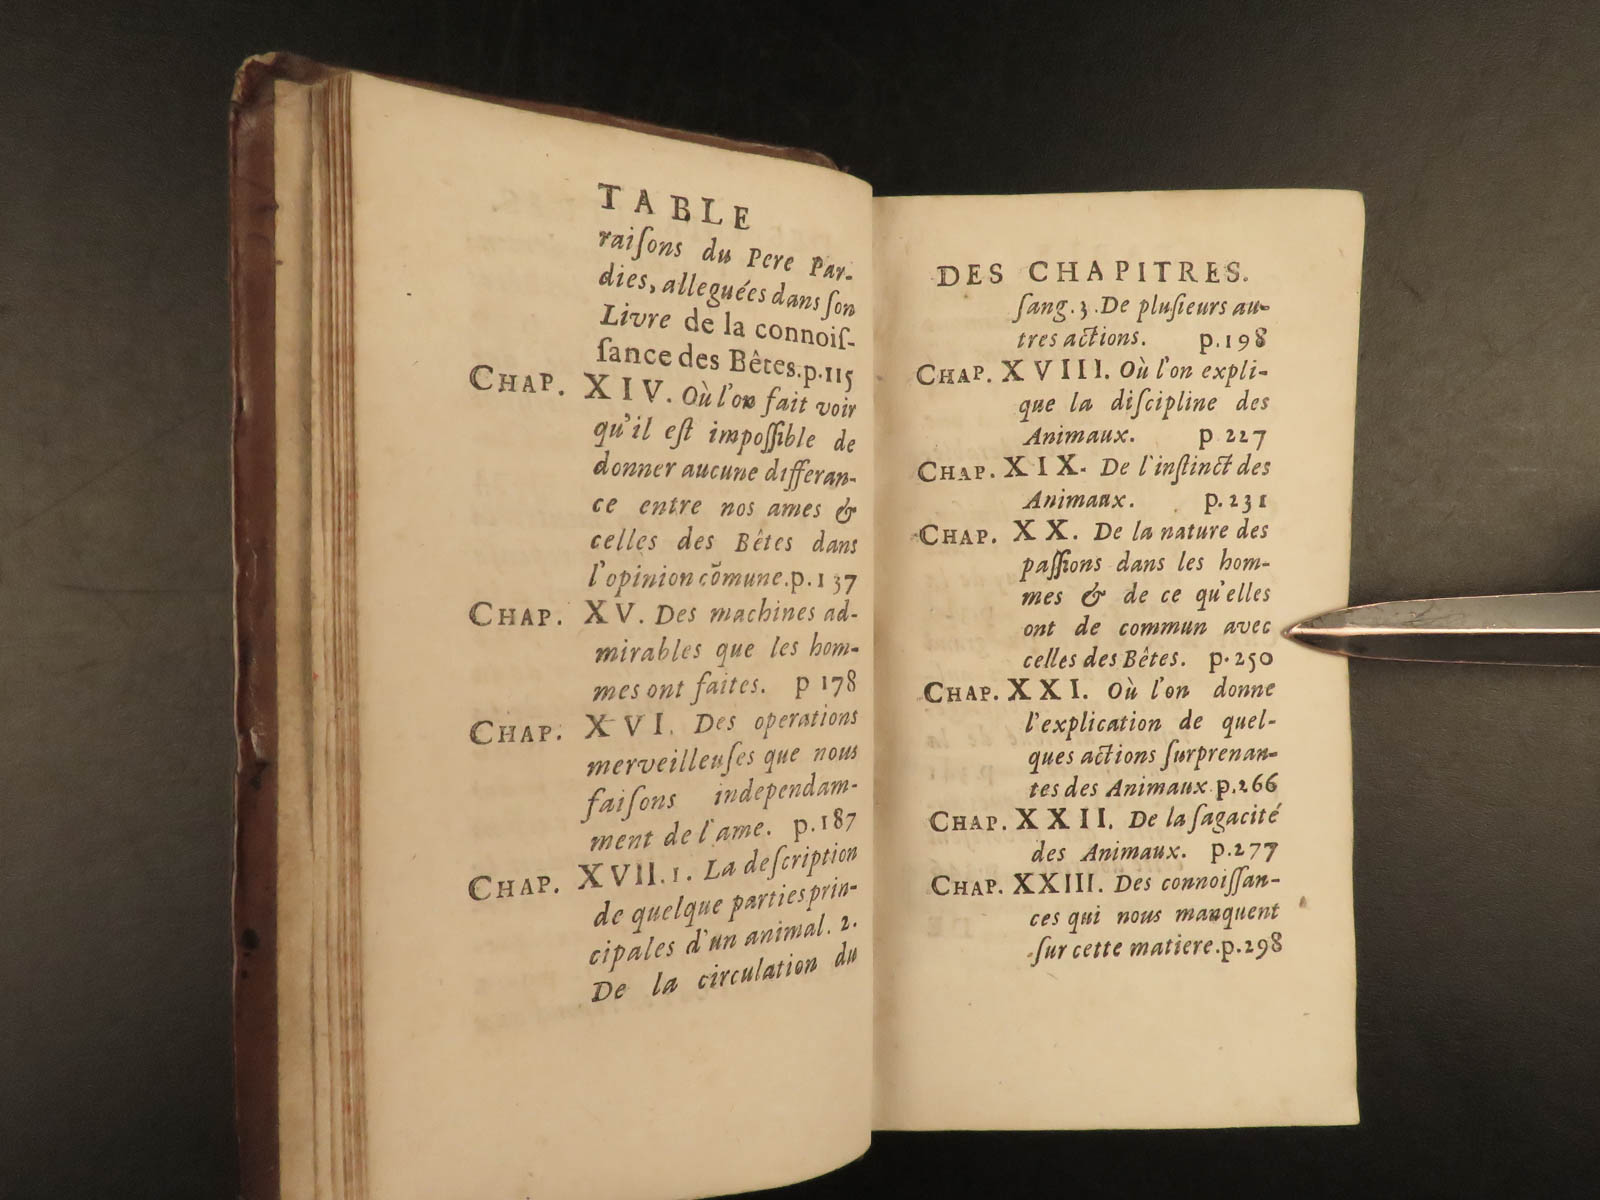 TABLE
raiſons du Pere Par-
dies, alleguées dans ſon
Livre de la connoiſ-
ſance des Bêtes.p.115
CHAP. XIV. Où l'on fait voir
qu'il eſt impoſſible de
donner aucune differan-
ce entre nos ames &
celles des Bêtes dans
l'opinion cõmune.p.137
CHAP. XV. Des machines ad-
mirables que les hom-
mes ont faites. p 178
CHAP. XVI. Des operations
merveilleuſes que nous
faiſons independam-
ment de l'ame. p.187
CHAP. XVII.1. La deſcription
de quelque parties prin-
cipales d'un animal. 2.
De la circulation du
DES CHAPITRES.
ſang.3.De pluſieurs au-
tres actions. p.198
CHAP. XVIII. Où l'on expli-
que la diſcipline des
Animaux. p 227
CHAP. XIX. De l'inſtinct des
Animaux. p.231
CHAP. XX. De la nature des
paſſions dans les hom-
mes & de ce qu'elles
ont de commun avec
celles des Bêtes. p.250
CHAP. XXI. Où l'on donne
l'explication de quel-
ques actions ſurprenan-
tes des Animaux p.266
CHAP. XXII. De la ſagacité
des Animaux. p.277
CHAP. XXIII. Des connoiſſan-
ces qui nous manquent
ſur cette matiere.p.298